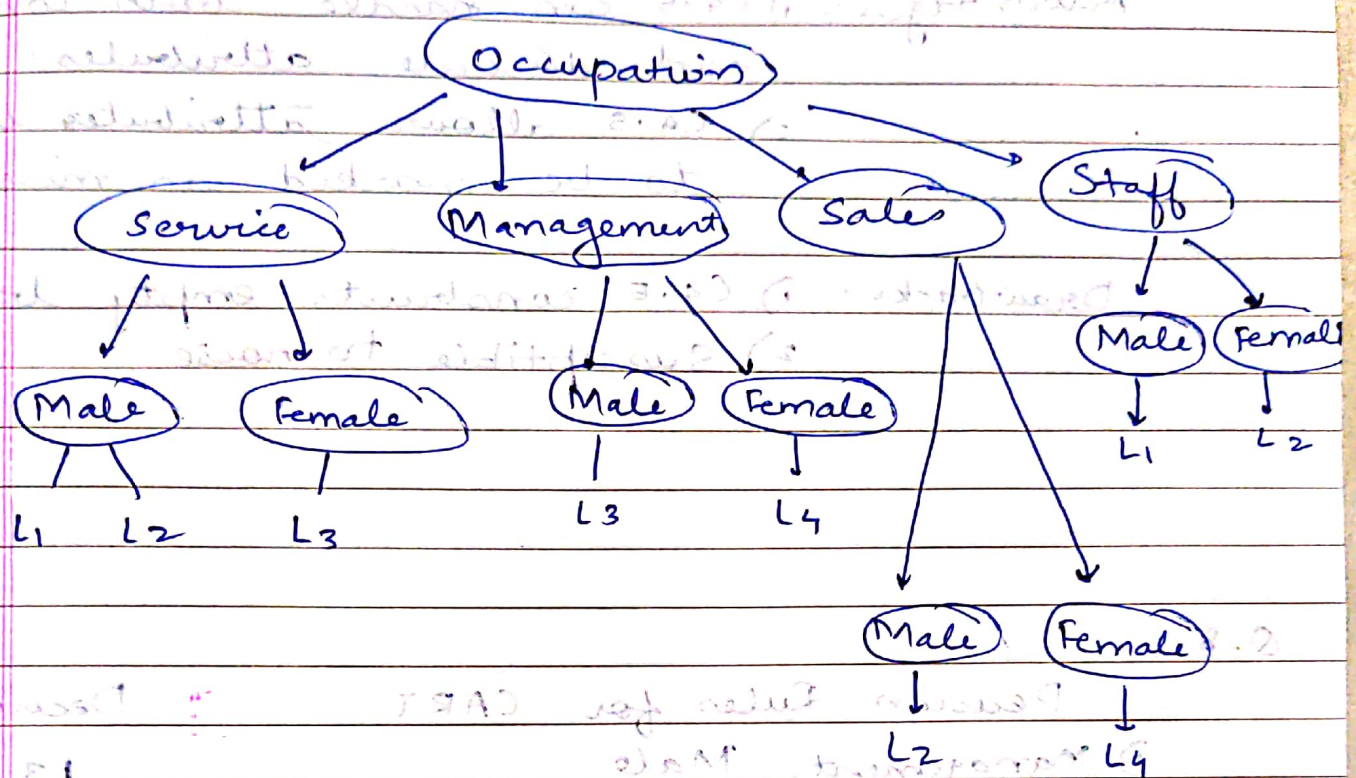 Occupation
Service Management Sales Staff
Male Female
Male Female Male Female
L1 L2
L1 L2 L3 L3 L4
Male Female
L2 L4